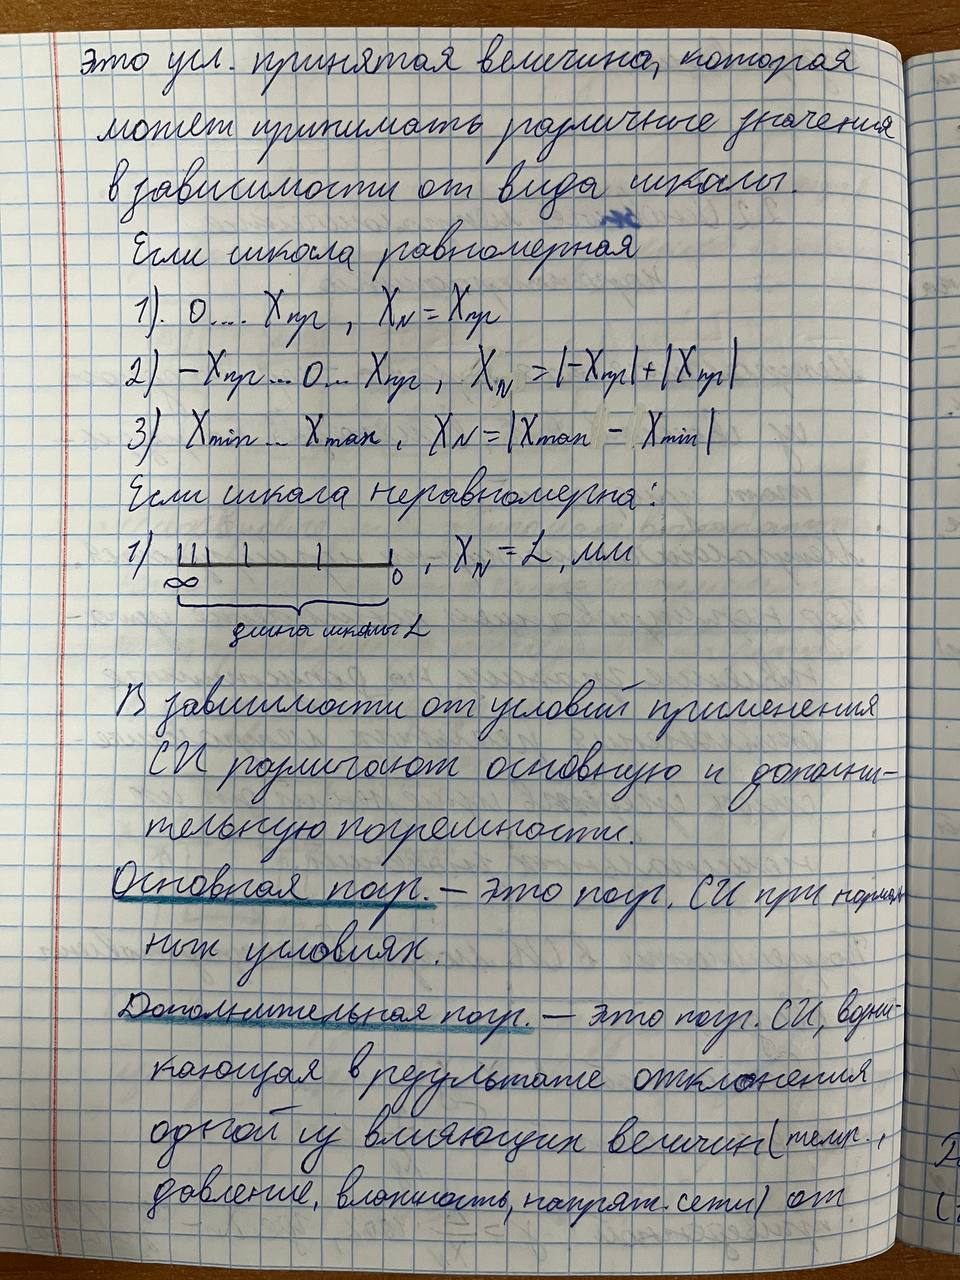 это усл. принятая величина, которая
может принимать различные значения
в зависимости от вида шкалы.
Если шкала равномерная
1). 0.... Xпр, XN = Xпр
2) -Xпр...0... Xпр, XN = |-Xпр| + |Xпр|
3) Xmin... Xmax, XN = |Xmax - Xmin|
Если шкала неравномерна:
1) , XN = L, мм
∞ 0
длина шкалы L
В зависимости от условий применения
СИ различают основную и дополни-
тельную погрешности.
Основная погр. — это погр. СИ при нормаль
ных условиях.
Дополнительная погр. — это погр. СИ, возни-
кающая в результате отклонения
одной из влияющих величин (темп.,
давление, влажность, напряж. сети) от